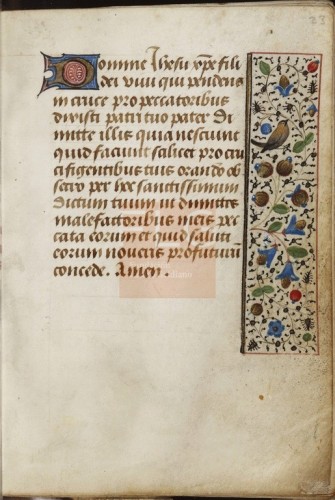 23
Domine Ihesu xpe fili
dei viui qui pendens
in cruce pro peccatoribus
dixisti patri tuo pater Di
mitte illis quia nesciunt
quid faciunt scilicet pro cru
cifigentibus tuis orando ob
secro per hec sanctissimum
Dictum tuum ut dimittas
malefactoribus meis pec
cata eorum et quid saluti
eorum noueris profuturū
concede. Amen.